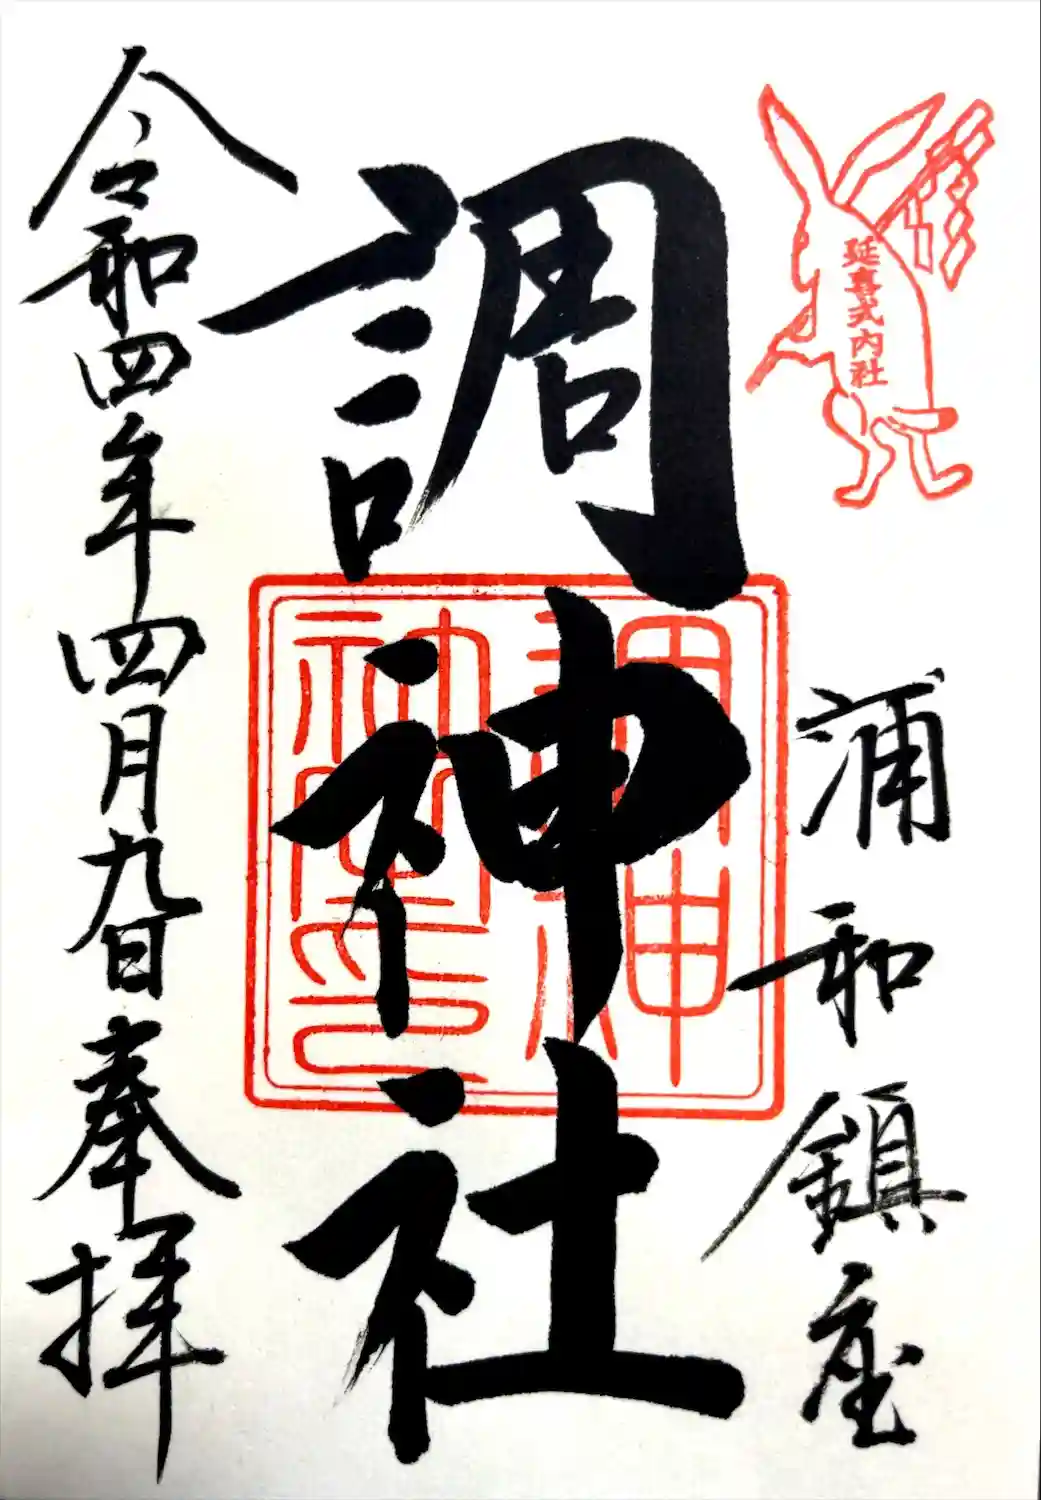 延喜式内社
浦和鎮座
調神社
調神社神璽之印
令和四年四月九日奉拝